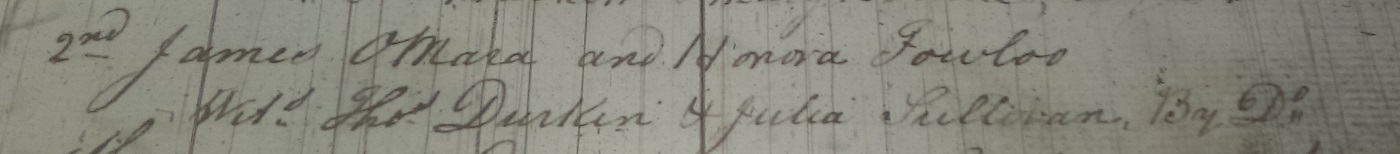 2nd James OMara and Honora Fowloo
Wits. Thos. Durkin & Julia Sullivan. By Do